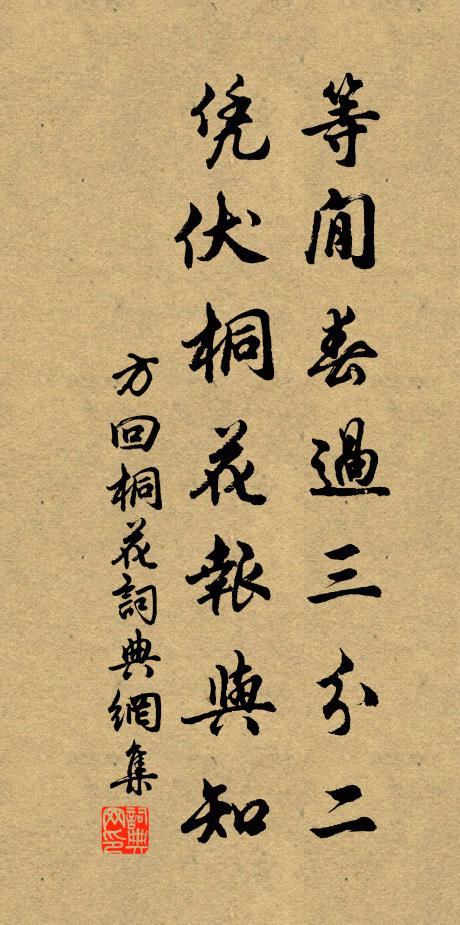 等閒春過三分二
凭伏桐花報與知
方回桐花詞典網集
詞典網印